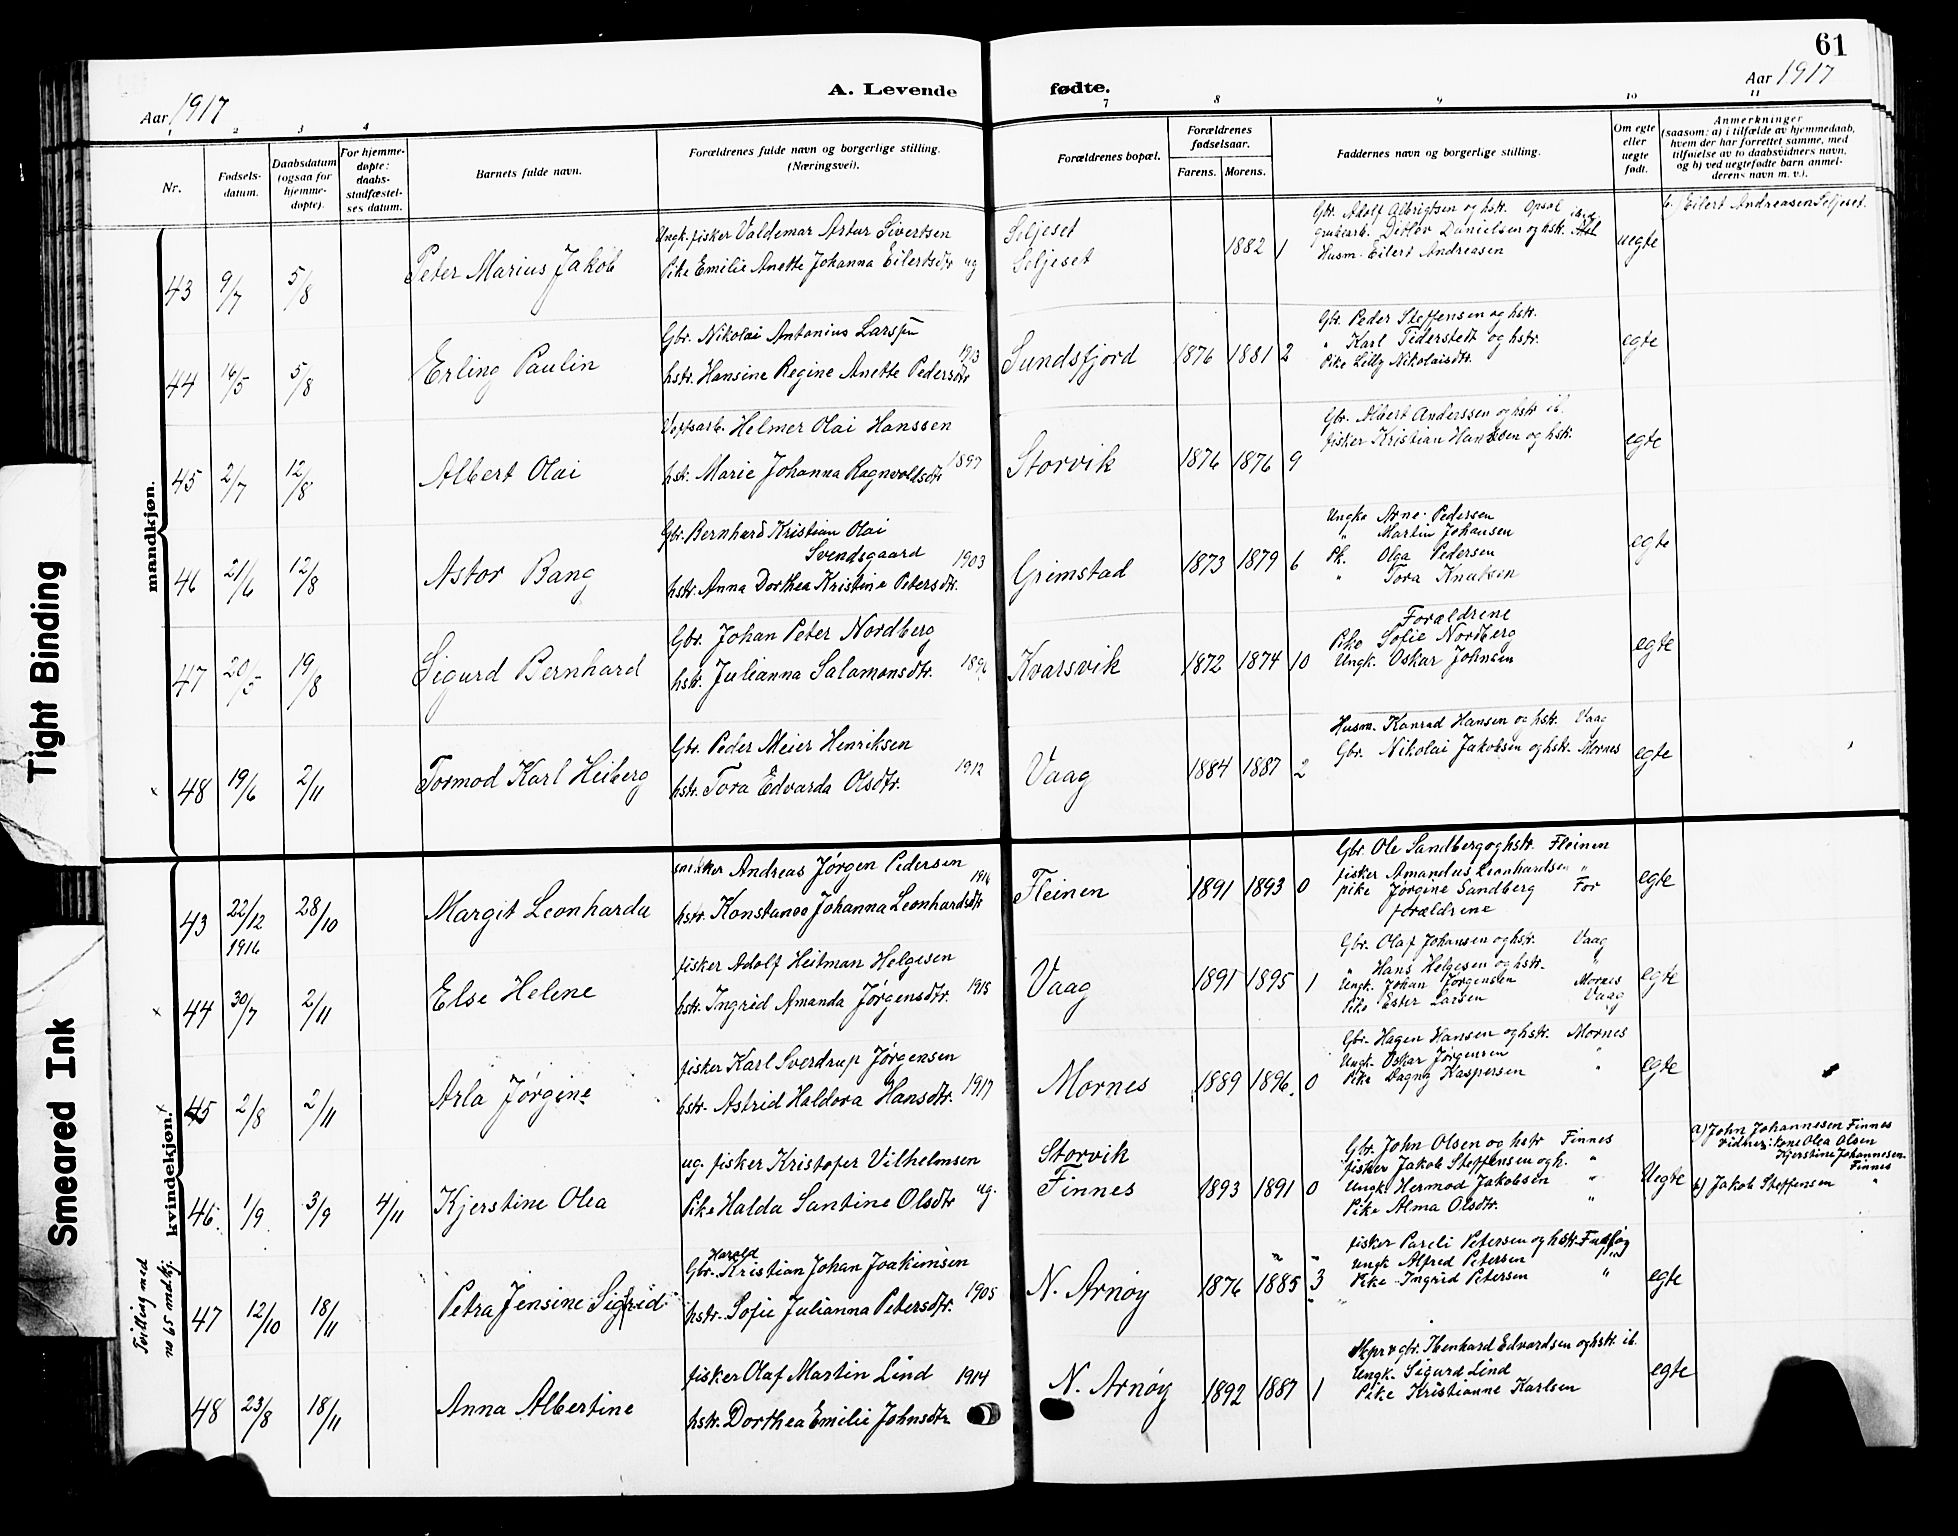 61
Aar 1917
A. Levende
fødte.
Aar 1917
1 2 3 4 7 8 9 10 11
Nr.
Fødsels-
datum.
Daabsdatum
(ogsaa for
hjemme-
døpte).
For hjemme-
døpte:
daabs-
stadfæstel-
ses datum.
Barnets fulde navn.
Forældrenes fulde navn og borgerlige stilling.
(Næringsvei).
Forældrenes bopæl.
Forældrenes
fødselsaar.
Farens. Morens.
Faddernes navn og borgerlige stilling.
Om egte
eller
uegte
født.
Anmerkninger
(saasom: a) i tilfælde av hjemmedaab,
hvem der har forrettet samme, med
tilføielse av to daabsvidners navn,
og b) ved uegtefødte barn anmel-
derens navn m. v.).
mandkjøn.
43 9/7 5/8 Peter Marius Jakob
Ungk. fisker Valdemar Artur Sivertsen
Pike Emilie Anette Johanna Eilertsdtr ug
Soljeset
Soljeset
1882 1
Gbr. Adolf Albrigtsen og hstr. Opsal
grubearb. Ditlev Danielsen og hstr.
Husm. Eilert Andreasen
uegte
b.) Eilert Andreasen Soljeset.
44 16/5 5/8 Erling Paulin
Gbr. Nikolai Antonius Larssen
hstr. Hansine Regine Anette Pedersdtr 1913
Sundsfjord 1876 1881 2
Gbr. Peder Steffensen og hstr.
" Karl Tiderstedt og hstr.
Pike Lilly Nikolaisdtr.
egte
45 2/7 12/8 Albert Olai
Helmer Olai Hanssen
hstr. Marie Johanna Ragnvoldsdtr 1897
Storvik 1876 1876 9
Gbr. Albert Anderssen og hstr ib.
fisker Kristian Hanssen og hstr.
egte
46 21/6 12/8 Astor Bang
Gbr. Bernhard Kristian Olai
Svendsgaard 1903
hstr. Anna Dorthea Kristine Petersdtr.
Grimstad 1873 1879 6
Ungk. Arne Pedersen
" Martin Johansen
Pk. Olga Pedersen
" Tora Knutsen
egte
47 20/5 19/8 Sigurd Bernhard
Gbr. Johan Peter Nordberg
hstr. Julianna Salamonsdtr.
Kvarsvik 1872 1874 10
Forældrene
Pike Sofie Nordberg
Ungk. Oskar Johnsen
egte
48 19/6 2/11 Tormod Karl Heiberg
Gbr. Peder Meier Henriksen
hstr. Tora Edvarda Olsdtr. 1912
Vaag 1884 1887 2
Husm. Konrad Hansen og hstr. Vaag
Gbr. Nikolai Jakobsen og hstr. Mornes
egte
kvindekjøn.
43 22/12 1916 28/10 Margit Leonharda
snekker Andreas Jørgen Pedersen
hstr. Konstance Johanna Leonhardsdtr 1916
Fleinen 1891 1893 0
Gbr. Ole Sandberg og hstr. Fleinen
fisker Amandus Leonhardsen "
pike Jørgine Sandberg For
forældrene
egte
44 30/7 2/11 Else Helene
fisker Adolf Heitman Helgesen
hstr. Ingrid Amanda Jørgensdtr. 1915
Vaag 1891 1895 1
Gbr. Olaf Johansen og hstr. Vaag
" Hans Helgesen og hstr. "
Ungk. Johan Jørgensen Mornes
Pike Ester Larsen Vaag
egte
45 2/8 2/11 Arla Jørgine
fisker Karl Sverdrup Jørgensen
hstr. Astrid Haldora Hansdtr. 1917
Mornes 1889 1896 0
Gbr. Hagen Hansen og hstr. Mornes
Ungk. Oskar Jørgensen
Pike Dagny Kaspersen "
egte
46 1/9 3/9 4/11 Kjerstine Olea
ug. fisker Kristofer Vilhelmsen
Pike Halda Santine Olsdtr ug.
Storvik
Finnes 1893 1891 0
Gbr. John Olsen og hstr Finnes
fisker Jakob Steffensen og h. "
Ungk. Hermod Jakobsen "
Pike Alma Olsdtr. "
Uegte
a) John Johannesen Finnes
vidner: kone Olea Olsen
Kjerstine Johannesen
Finnes
b) Jakob Steffensen "
Tvilling med
no 65 mdkj.
47 12/10 18/11 Petra Jensine Sigfrid
Harald
Gbr. Kristian Johan Joakimsen
hstr. Sofie Julianna Petersdtr. 1905
N. Arnøy 1876 1885 3
fisker Pareli Petersen og hstr.
Ungk Alfred Petersen "
Pike Ingrid Petersen "
egte
48 23/8 18/11 Anna Albertine
fisker Olaf Martin Lind 1914
hstr. Dorthea Emilie Johnsdtr
N. Arnøy 1892 1887 1
gbr. Ibenhard Edvardsen og hstr. ib.
Ungk. Sigurd Lind
Pike Kristianne Karlsen
egte
Tight Binding
Smeared Ink